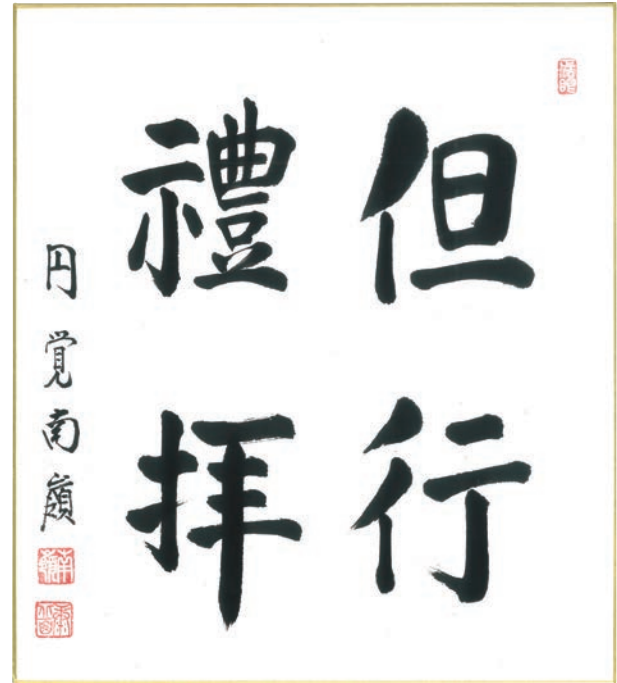 但行
禮拝
円覚南嶺